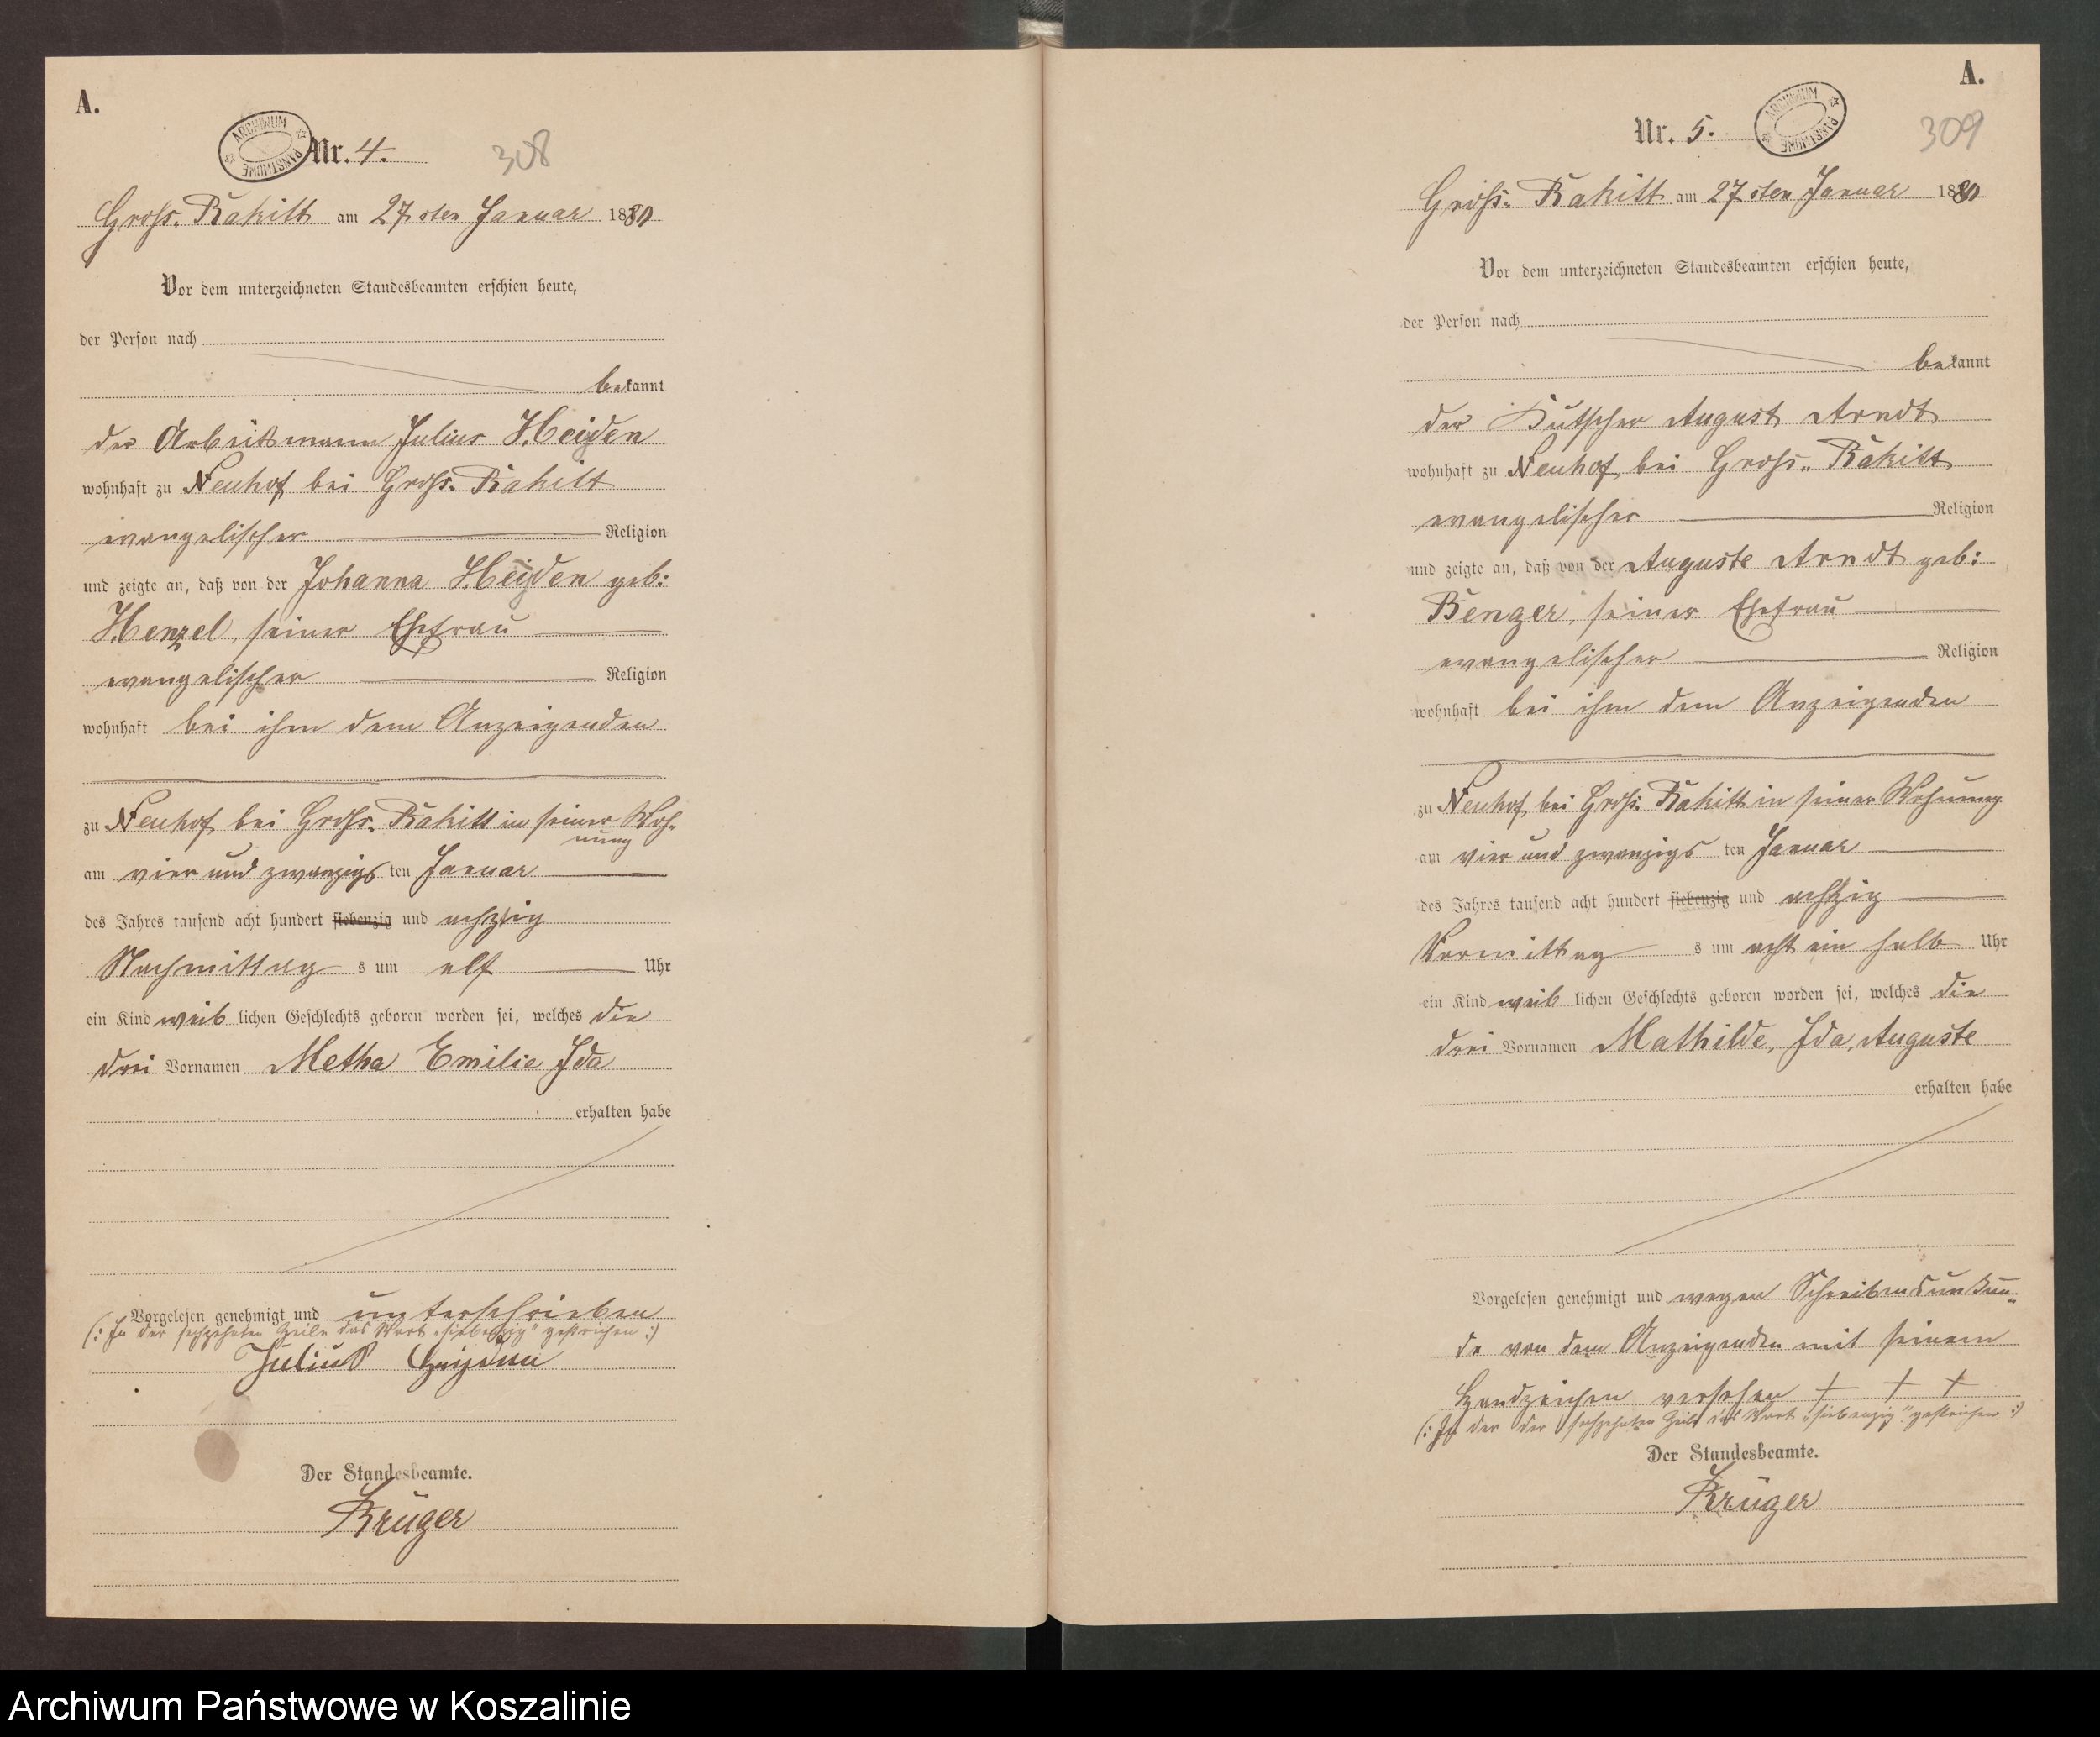 A.
ARCHIWUM PAŃSTWOWE
Nr. 4.
308
Gross-Rakitt am 27sten Januar 1880
Vor dem unterzeichneten Standesbeamten erschien heute,
der Person nach
bekannt
der Arbeitsmann Julius Heyden
wohnhaft zu Neuhof bei Gross-Rakitt
evangelischer Religion
und zeigte an, daß von der Johanna Heyden geb:
Henzel, seiner Ehefrau
evangelischer Religion
wohnhaft bei ihm dem Anzeigenden
zu Neuhof bei Gross-Rakitt in seiner Woh-
nung
am vier und zwanzigs ten Januar
des Jahres tausend acht hundert siebenzig und achtzig
Nachmittag s um elf Uhr
ein Kind weib lichen Geschlechts geboren worden sei, welches die
drei Vornamen Metha Emilie Ida
erhalten habe
Vorgelesen genehmigt und unterschrieben
(: In der sechzehnten Zeile das Wort „siebenzig" gestrichen :)
Julius Heyden
Der Standesbeamte.
Krüger
A.
ARCHIWUM PAŃSTWOWE
Nr. 5.
309
Gross-Rakitt am 27sten Januar 1880
Vor dem unterzeichneten Standesbeamten erschien heute,
der Person nach
bekannt
der Kutscher August Arndt
wohnhaft zu Neuhof bei Gross-Rakitt
evangelischer Religion
und zeigte an, daß von der Auguste Arndt geb:
Benzer, seiner Ehefrau
evangelischer Religion
wohnhaft bei ihm dem Anzeigenden
zu Neuhof bei Gross-Rakitt in seiner Wohnung
am vier und zwanzigs ten Januar
des Jahres tausend acht hundert siebenzig und achtzig
Vormittag s um acht ein halb Uhr
ein Kind weib lichen Geschlechts geboren worden sei, welches die
drei Vornamen Mathilde, Ida, Auguste
erhalten habe
Vorgelesen genehmigt und wegen Schreibensunkun-
de von dem Anzeigenden mit seinem
Handzeichen versehen + + +
(: In der der sechzehnten Zeile das Wort „siebenzig" gestrichen :)
Der Standesbeamte.
Krüger
Archiwum Państwowe w Koszalinie